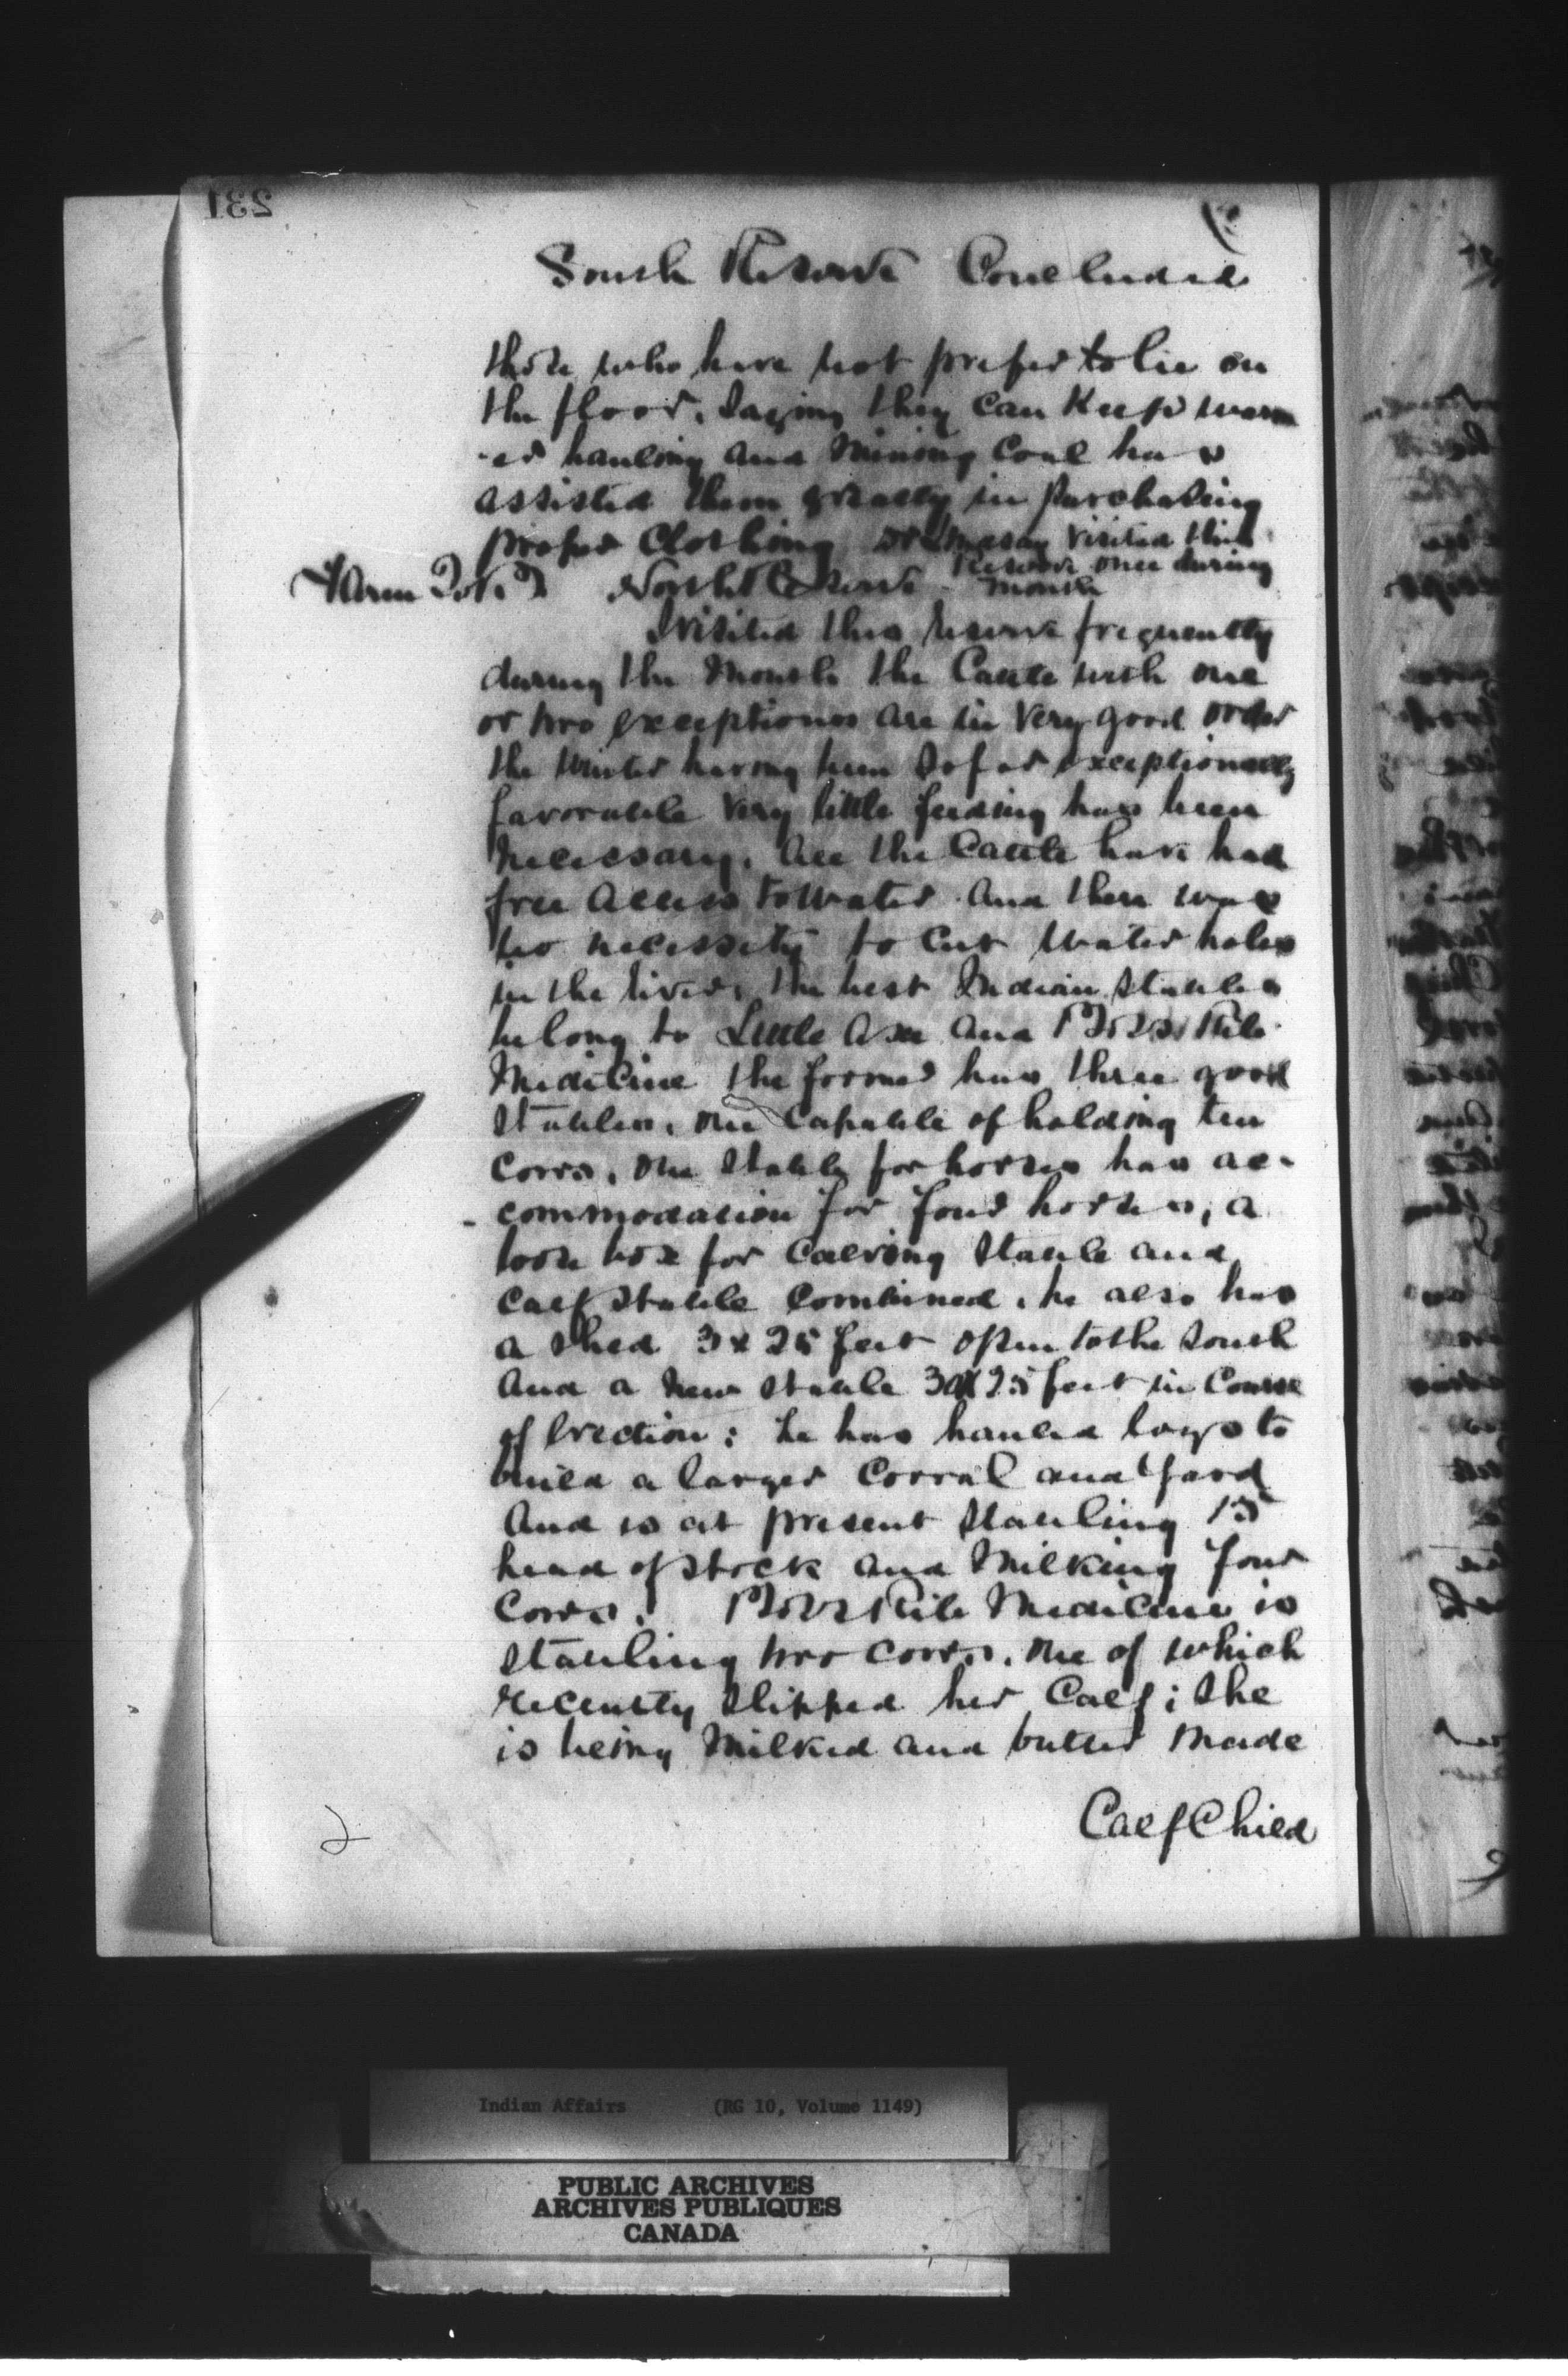 231
South Reserve Concluded
those who have not prefer to lie on
the floor, saying they can Keep warm
-er hauling and Mining Coal has
assisted them greatly in purchasing
proper Clothing visited this
Reserve once during
Month
Farm North Reserve
I visited this reserve frequently
during the Month the Cattle with one
or two exceptions are in very good order
the Winter having been so far exceptionally
favorable very little feeding has been
necessary. All the Cattle have had
free access to Water and there was
no necessity to Cut Water holes
in the river, the best Indian Stables
belong to Little Axe and
Medicine the former has three good
Stables, one Capable of holding ten
Cows, one Stable for horses has ac-
commodation for four horses, a
loose box for Calving Stable and
Calf Stable Combined, he also has
a Shed 3 x 25 feet open to the South
And a new Stable 30 x 25 feet in Course
of Erection; he has hauled logs to
build a larger Corral and Yard
And is at present Stabling 15
head of Stock and Milking four
Cows. Medicine is
Stabling two Cows, one of which
recently Slipped her Calf; She
is being Milked and butter Made
Calf Child
2
Indian Affairs (RG 10, Volume 1149)
PUBLIC ARCHIVES
ARCHIVES PUBLIQUES
CANADA